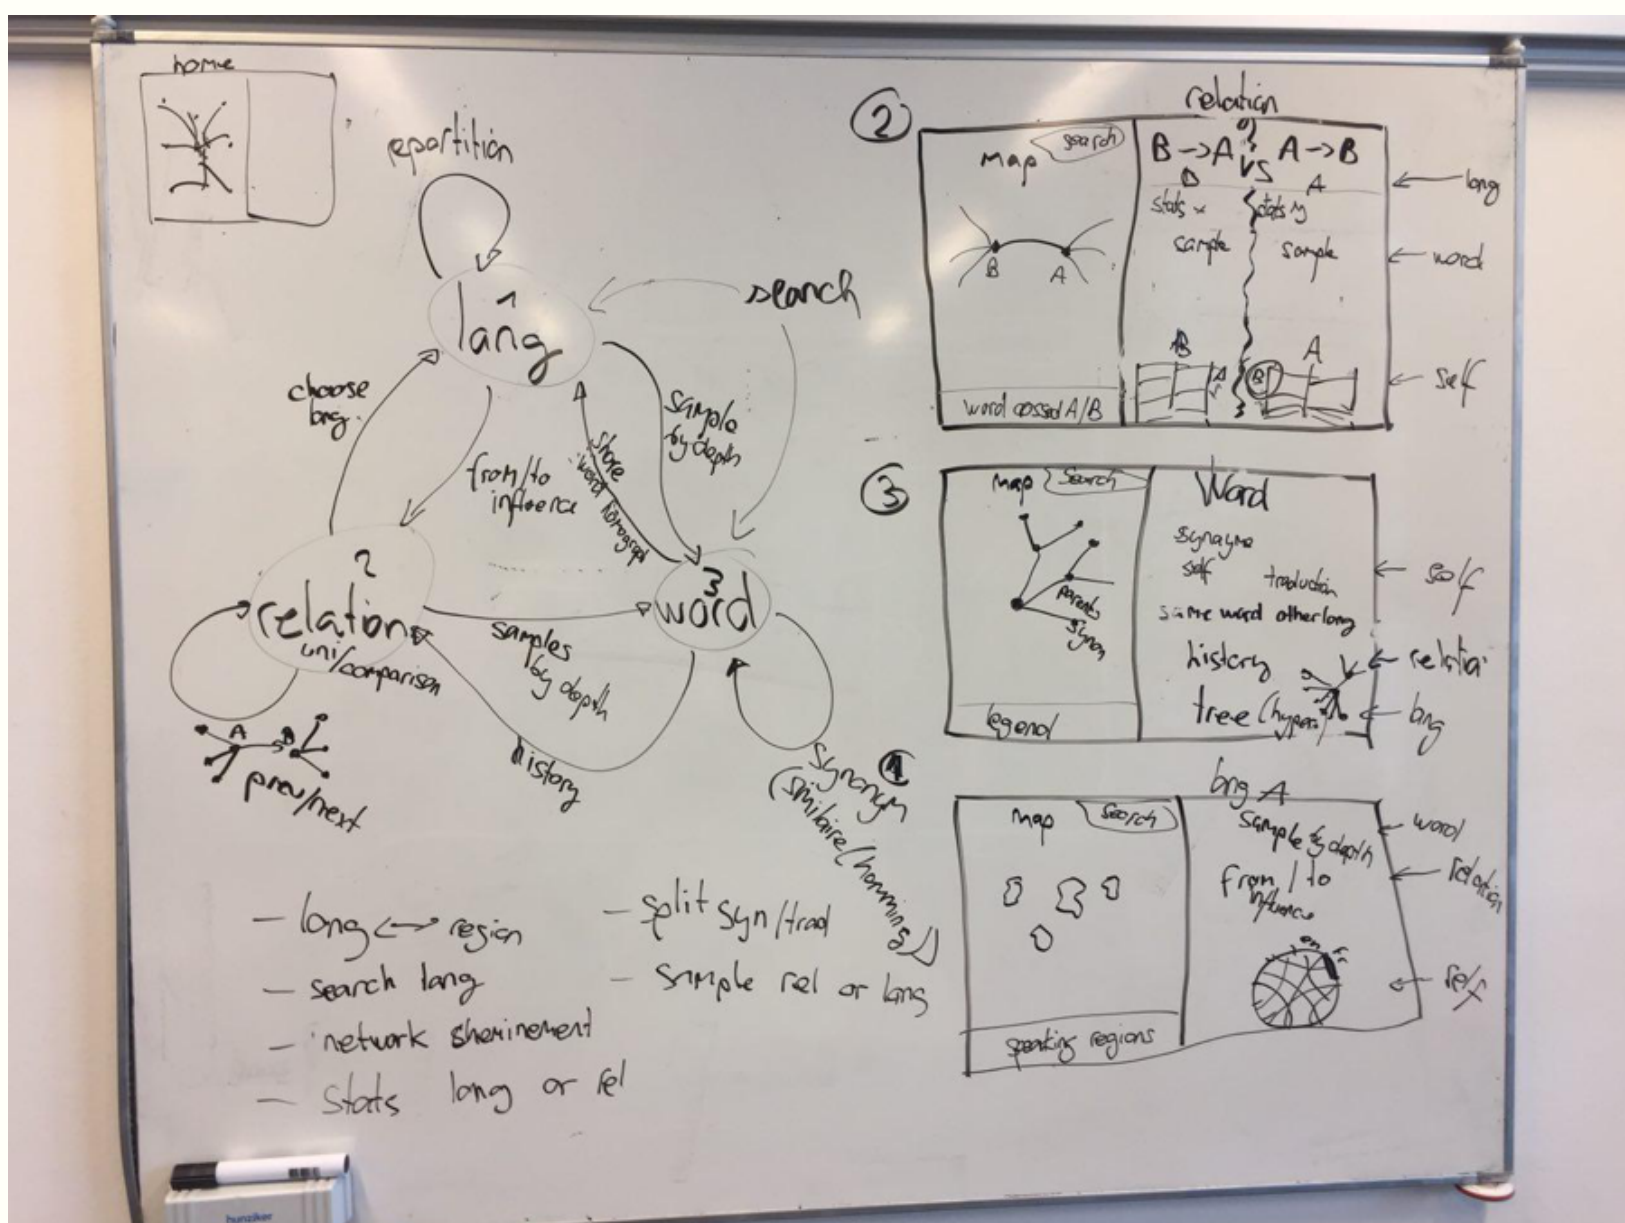 home
repartition
search
1
lang
choose
lang.
sample
by depth
from/to
influence
share
word homograph
2
relation
uni/comparison
3
word
samples
by depth
history
A
B
prev/next
synonym
(similaire/homming)
- lang <-> region
- search lang
- network
- stats lang or rel
- split syn/trad
- sample rel or lang
2
relation
Map
search
B -> A
VS
A -> B
A
stats x
stats y
sample
sample
B
A
word cossed A/B
B
A
A
B
<- lang
<- word
<- self
3
Map
Search
Word
parents
synon
legend
synonyme
self
traduction
same word other lang
history
tree (hyper)
<- self
<- relation
<- lang
1
lang A
Map
Search
speaking regions
sample by depth
from / to
influence
en
fr
<- word
<- relation
<- self
hunziker